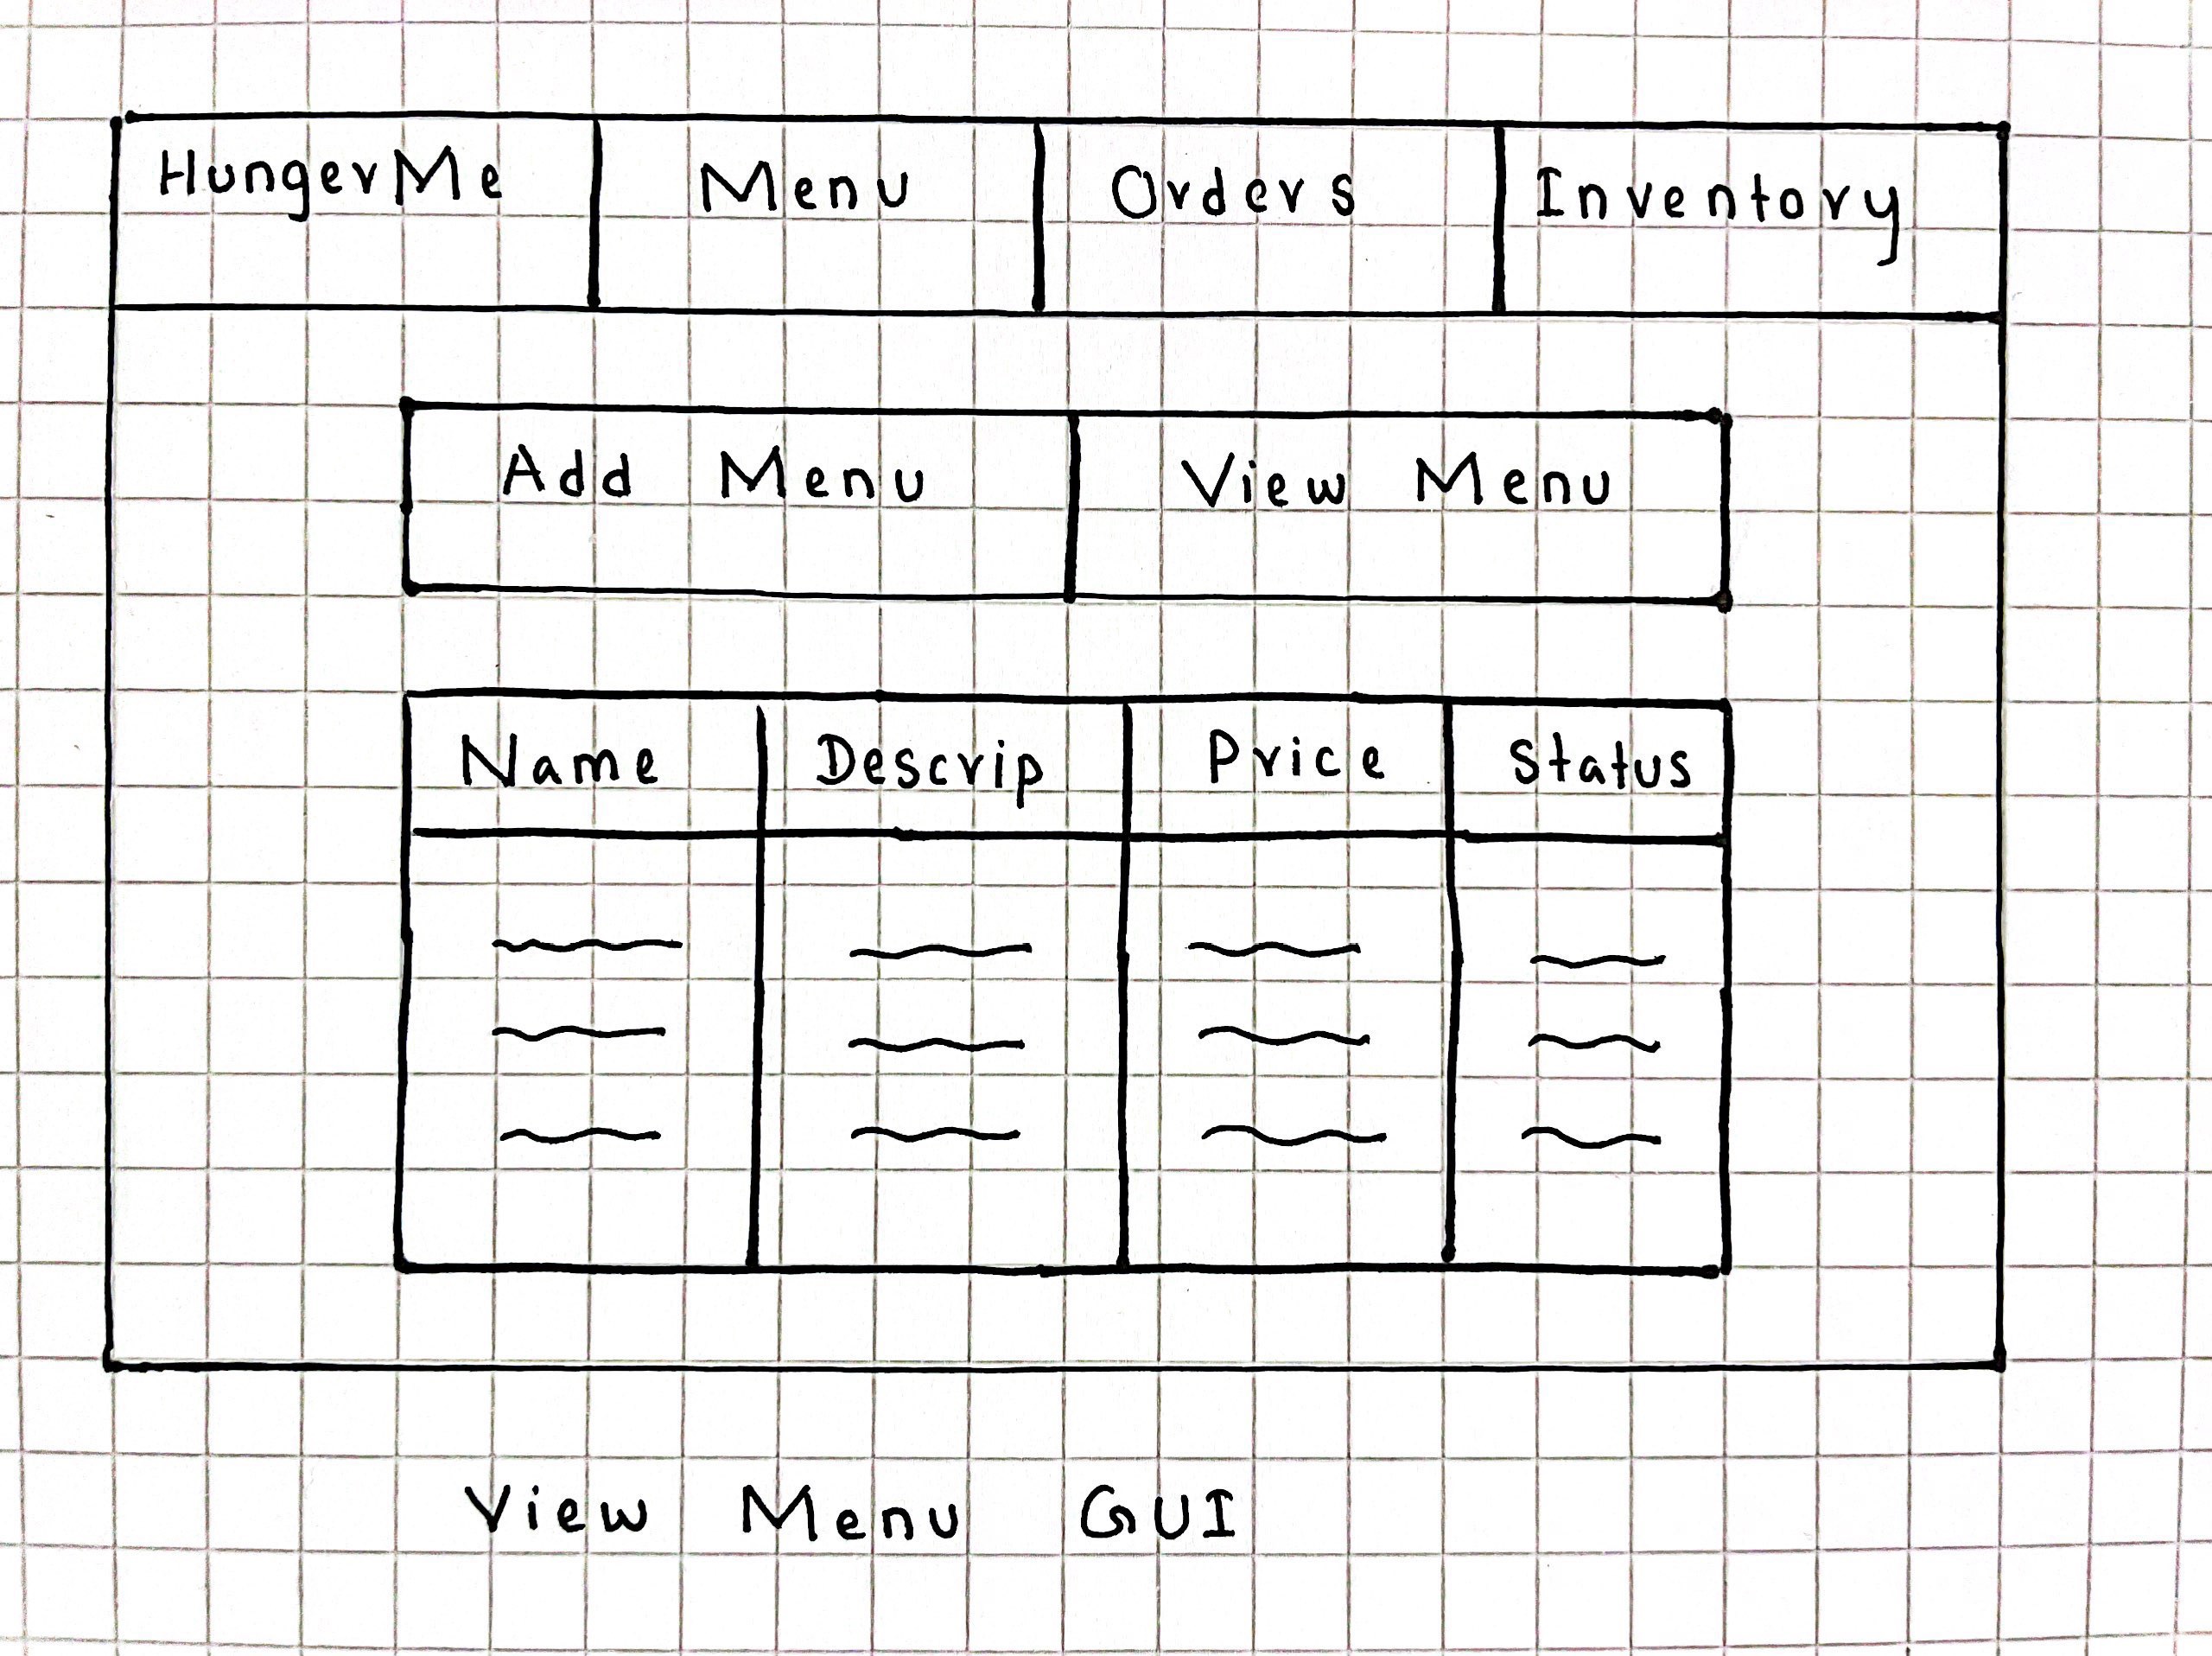 HungerMe Menu Orders Inventory
Add Menu View Menu
Name Descrip Price Status
View Menu GUI